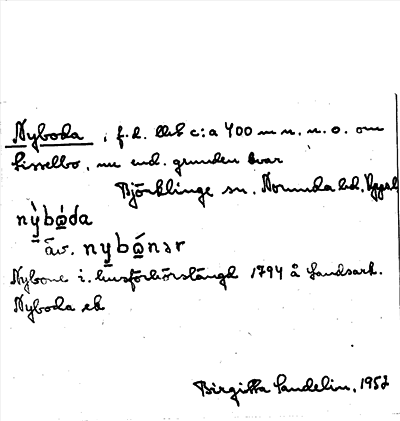 Nyboda, f.d. lht c:a 400 m n.n.o. om
Sisselbo, nu end. grunden kvar
Björklinge sn. Norunda hd. Uppsl
nỳbǫ́da
äv. nybǫ́nər
Nybone i. husförhörslängd 1794 å Landsark.
Nyboda ek
Birgitta Sandelin, 1952